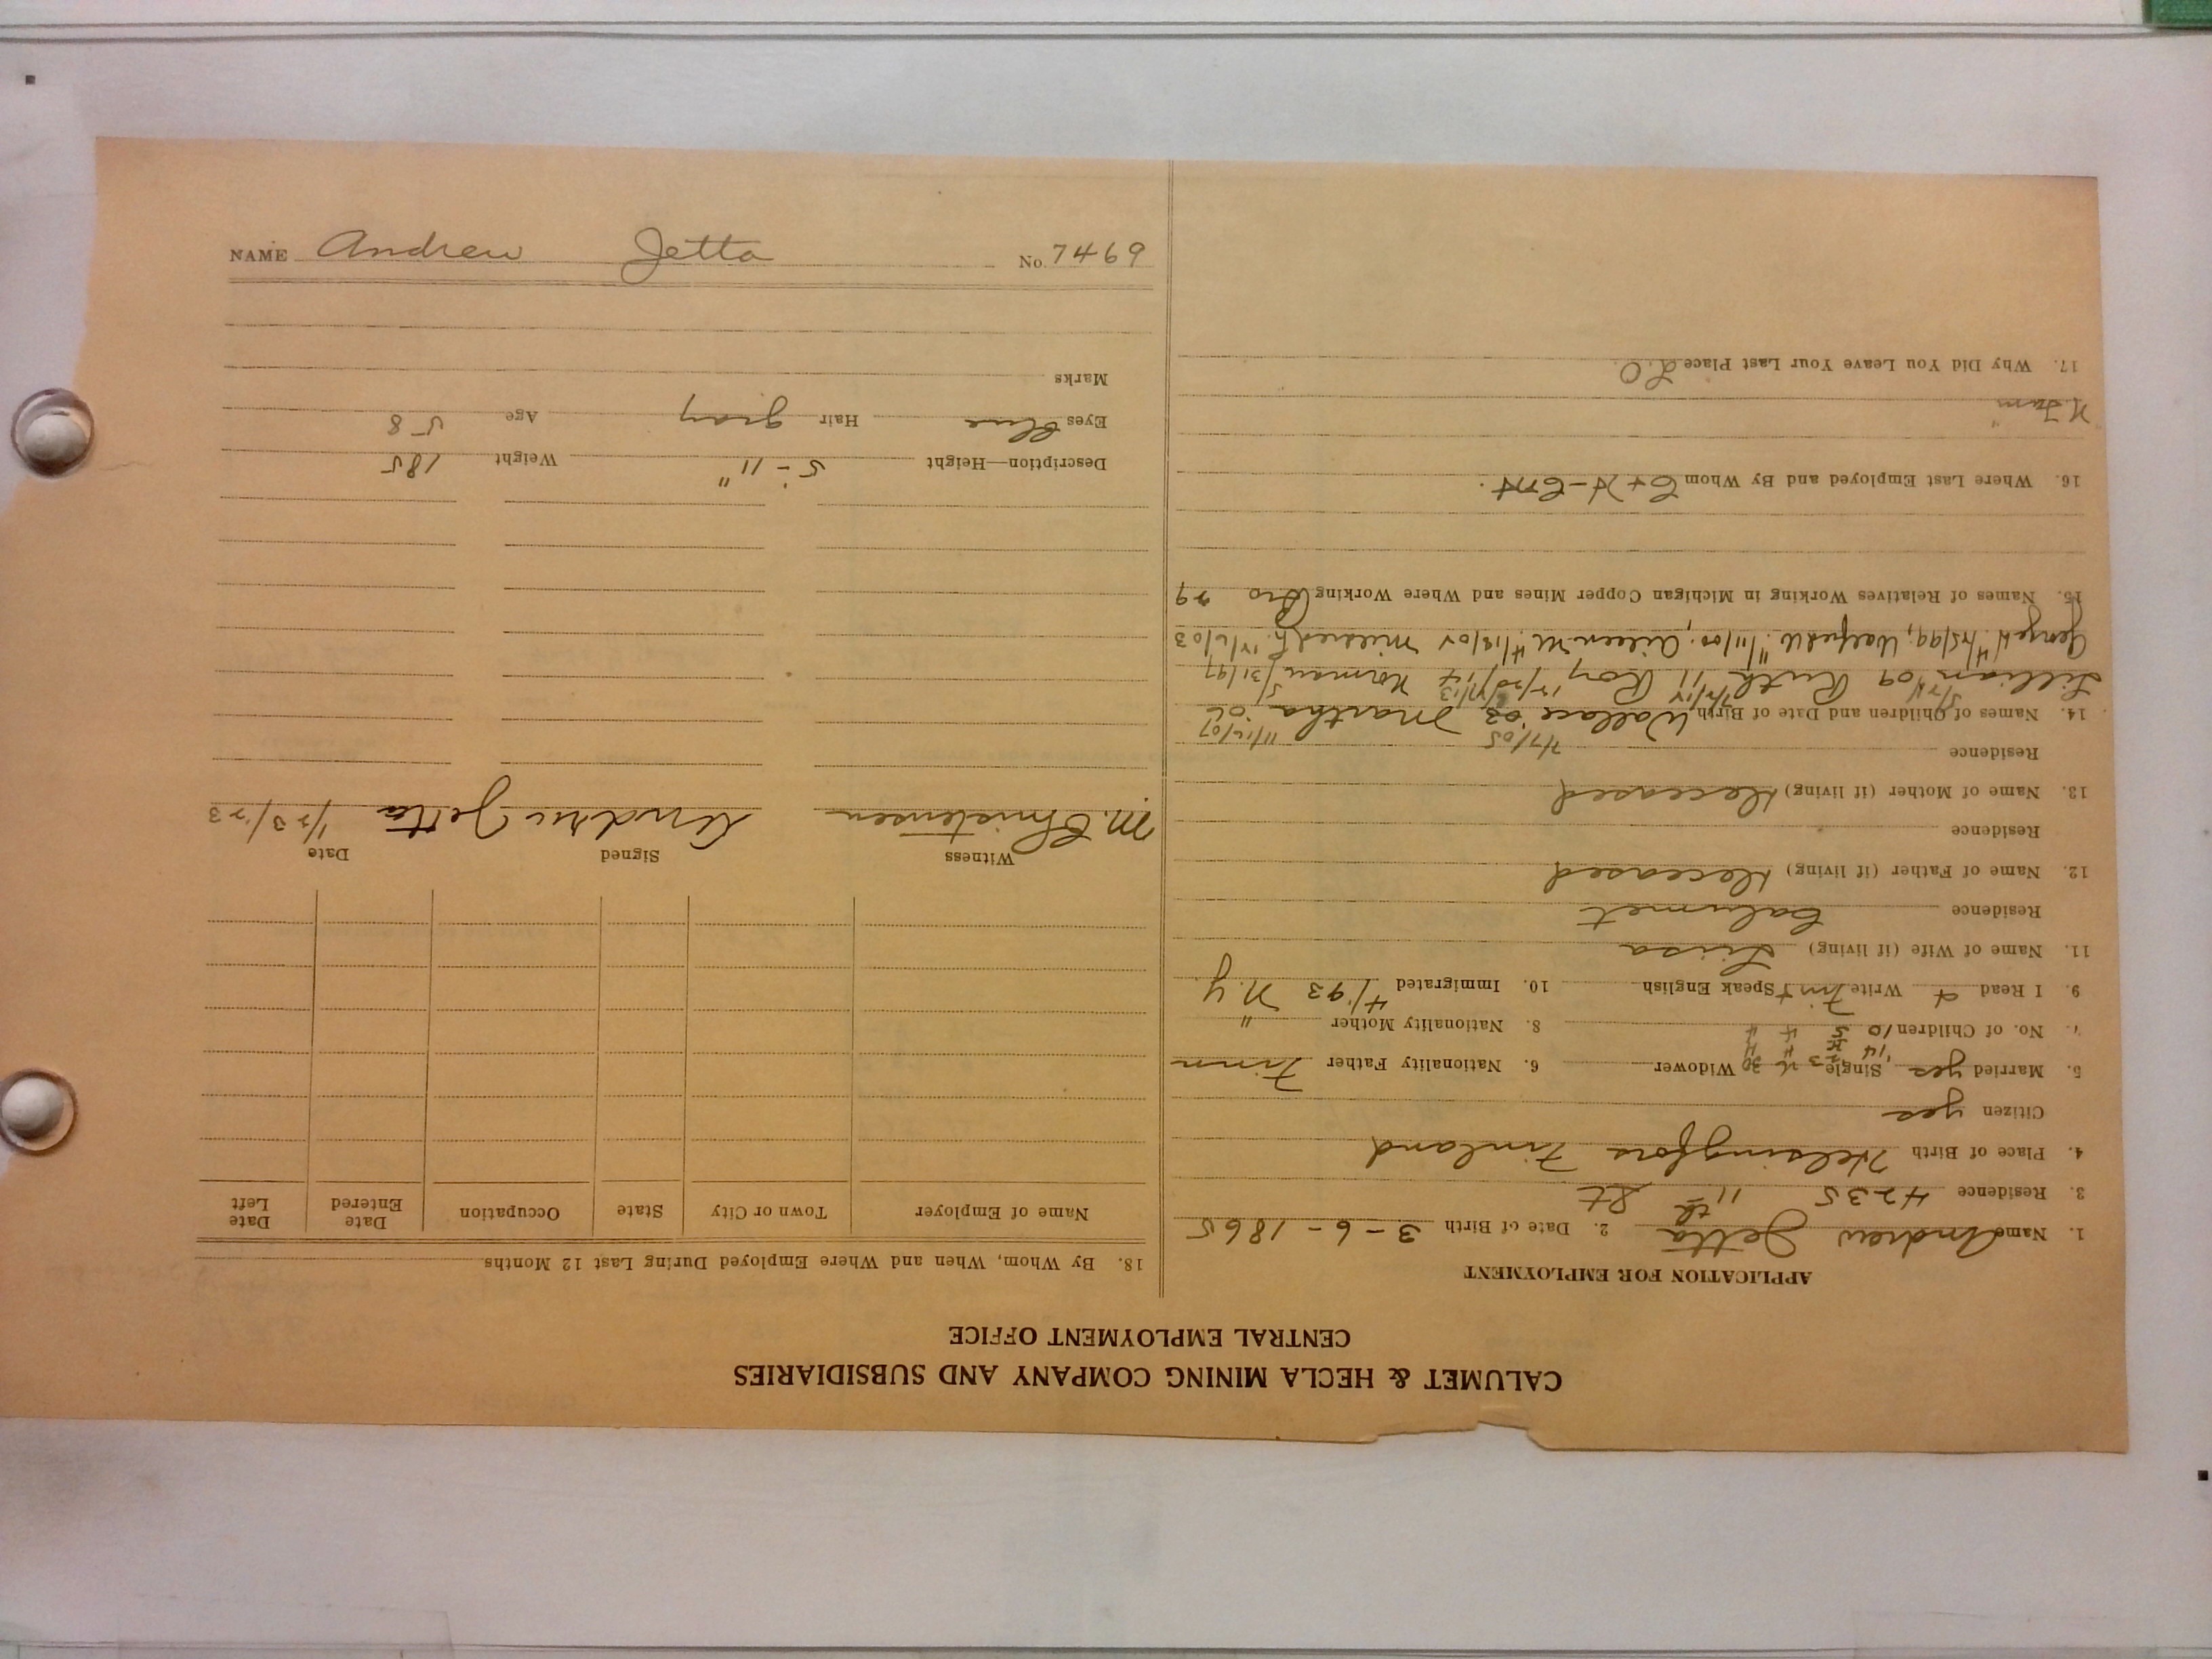 CALUMET & HECLA MINING COMPANY AND SUBSIDIARIES
CENTRAL EMPLOYMENT OFFICE
APPLICATION FOR EMPLOYMENT
1. Name Andrew Jetta 2. Date of Birth 3-6-1865
3. Residence 4235 11th St
4. Place of Birth Helsingfors Finland
Citizen yes
5. Married yes Single Widower 6. Nationality Father Finn
7. No. of Children 10 8. Nationality Mother "
9. I Read + Write Finn + Speak English 10. Immigrated 4/93 N.Y.
11. Name of Wife (if living) Liisa
Residence Calumet
12. Name of Father (if living) Deceased
Residence
13. Name of Mother (if living) Deceased
Residence
2/7/05 11/16/07
14. Names of Children and Date of Birth Wallace '03 Martha '06
Lillian 09 Ruth 11 Roy 14 Norman 5/31/97
George H. 4/25/99; Walfred W. 11/11/00; Aileen M. 4/18/05 Mildred L. 12/6/03
15. Names of Relatives Working in Michigan Copper Mines and Where Working Bro 29
16. Where Last Employed and By Whom C+H-
17. Why Did You Leave Your Last Place L.O.
18. By Whom, When and Where Employed During Last 12 Months
Name of Employer Town or City State Occupation Date Entered Date Left
Witness Signed Date
M. Christensen Andru Jetta 1/23/23
Description—Height 5'-11" Weight 185
Eyes Blue Hair gray Age 58
Marks
NAME Andrew Jetta No. 7469